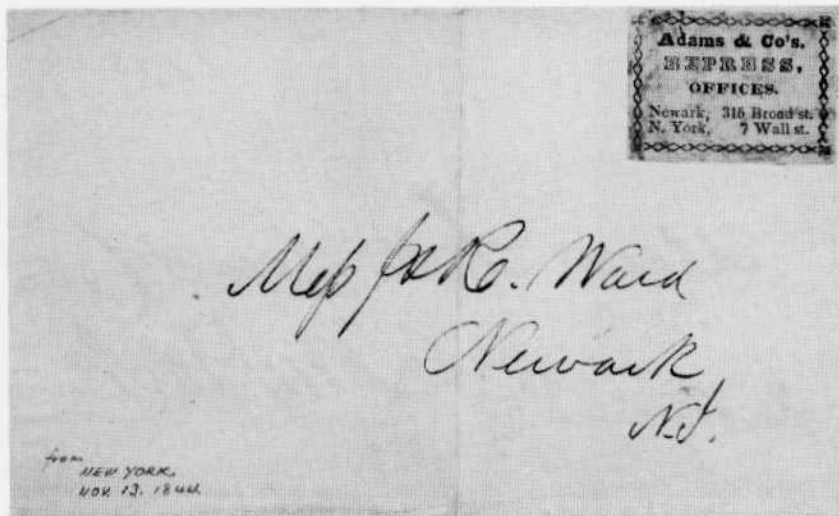 Adams & Co's.
EXPRESS,
OFFICES.
Newark, 315 Broad st.
N. York, 7 Wall st.
Ward
Newark
N.J.
from
NEW YORK
NOV. 13. 1844